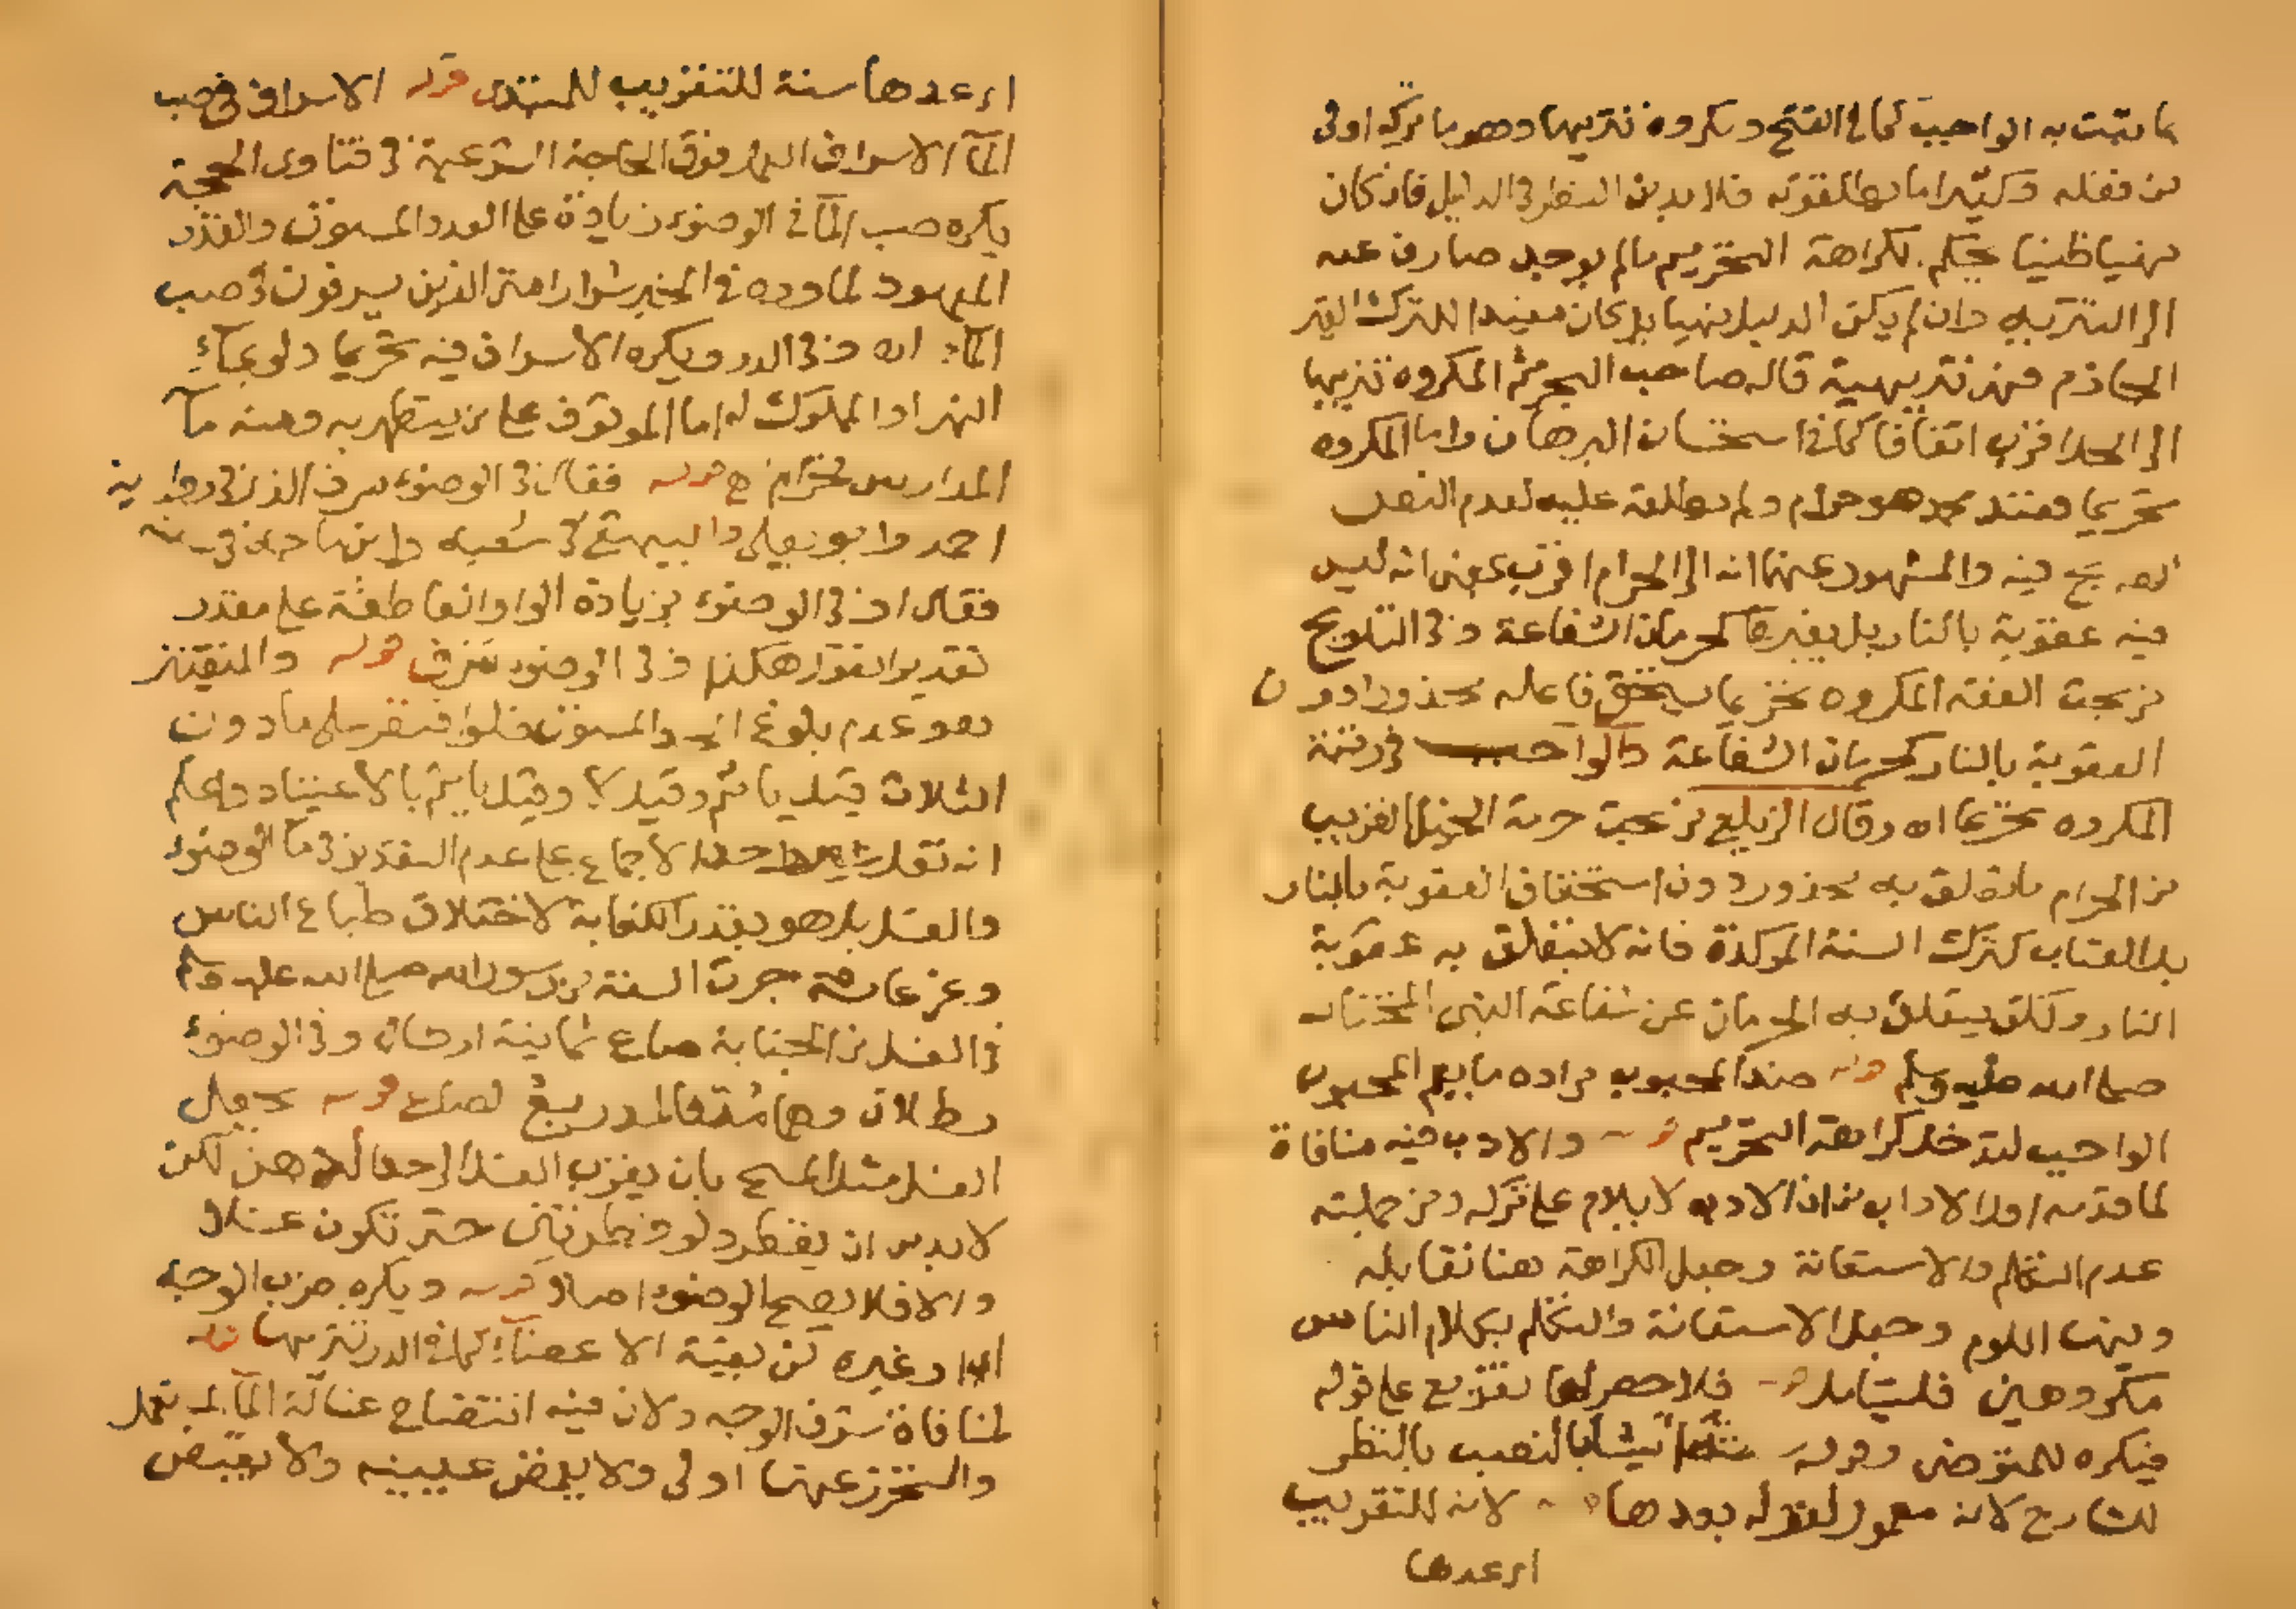 بما يثبت به الواجب كما في الفتح ومكروه تنزيها وهو ما تركه اولى
من فعله وكثيرا ما يطلقونه فلا بد من النظر في الدليل فان كان
نهيا ظنيا يحكم بكراهة التحريم ما لم يوجد صارف عنه
الى التنزيه وان لم يكن الدليل نهيا بل كان مفيدا للترك الغير
الجازم فهي تنزيهية قاله صاحب البحر ثم المكروه تنزيها
الى الحل اقرب اتفاقا كما في استحسان البرهان واما المكروه
تحريما فعند محمد هو حرام ولم يطلقه عليه لعدم النص
الصريح فيه والمشهور عنهما انه الى الحرام اقرب بمعنى انه ليس
فيه عقوبة بالنار بل بغيرها كحرمان الشفاعة وفي التلويح
من بحث الفقه المكروه تحريما يستحق فاعله محذورا دون
العقوبة بالنار كحرمان الشفاعة والواجب في رتبة
المكروه تحريما اه وقال الزيلعي من بحث حرمة الخيل القريب
من الحرام ما تعلق به محذور دون استحقاق العقوبة بالنار
بل العتاب كترك السنة الموكدة فانه لا يتعلق به عقوبة
النار ولكن يتعلق به الحرمان عن شفاعة النبي المختار
صلى الله عليه وسلم قوله ضد المحبوب مراده ما يعم المحبوب
الواجب لتدخل كراهة التحريم قوله والادب فيه منافاة
لما قدمه اول الاداب من ان الادب لا يلام على تركه ومن جملته
عدم التكلم والاستعانة وجعل الكراهة هنا تقابله
وفيها اللوم وجعل الاستعانة والتكلم بكلام الناس
مكروهين فليتامل قوله فلا حصر لها تفريع على قوله
فيكره للمتوضئ وقوله ستة اشياء بالنصب بالنظر
للشارح لانه معمول لقوله بعدها قوله لانه للتقريب
ا ي عدها
ا ي عدها ستة للتقريب للمبتدى قوله الاسراف في صب
المآ الاسراف العمل فوق الحاجة الشرعية في فتاوى الحجة
يكره صب المآ في الوضوء زيادة على العدد المسنون والقدر
المعهود لما ورد في الخبر شرار امتي الذين يسرفون في صب
المآء اه وفي الدر ويكره الاسراف فيه تحريما ولو بمآء
النهر او المملوك له اما الموقوف على من يتطهر به ومنه مآ
المدارس فحرام ح قوله فقال في الوضوء سرف الذي في رواية
احمد وابو يعلى والبيهقي في شعبه وابن ماجه في سننه
فقال اوفي الوضوء بزيادة الواو العاطفة على مقدر
تقديره اتقول هكذا وفي الوضوء سرف قوله والتقتير
وهو عدم بلوغ الحد المسنون فلو اقتصر على ما دون
الثلاث قيل ياثم وقيل لا وقيل ياثم بالاعتياد واعلم
انه نقل الاجماع على عدم التقدير في مآ الوضوء
والغسل بل هو بقدر الكفاية لاختلاف طباع الناس
وعن عائشة جرت السنة من رسول الله صلى الله عليه وسلم
في الغسل من الجنابة صاع ثمانية ارطال وفي الوضوء
رطلان وهما ربع لصاع قوله بجعل
الغسل مثل المسح بان يقرب الغسل الى حالة هي لكن
لا بد من ان يقطر ولو قطرتين حتى تكون غسلا
والا فلا يصح الوضوء اصلا قوله ويكره ضرب الوجه
اي او غيره من بقية الاعضآء كما في الدر تنزيها قوله
لمنافاة شرف الوجه ولان فيه انتضاح غسالة المآ المستعمل
والتحرز عنها اولى ولا يغمض عينيه ولا يقبض